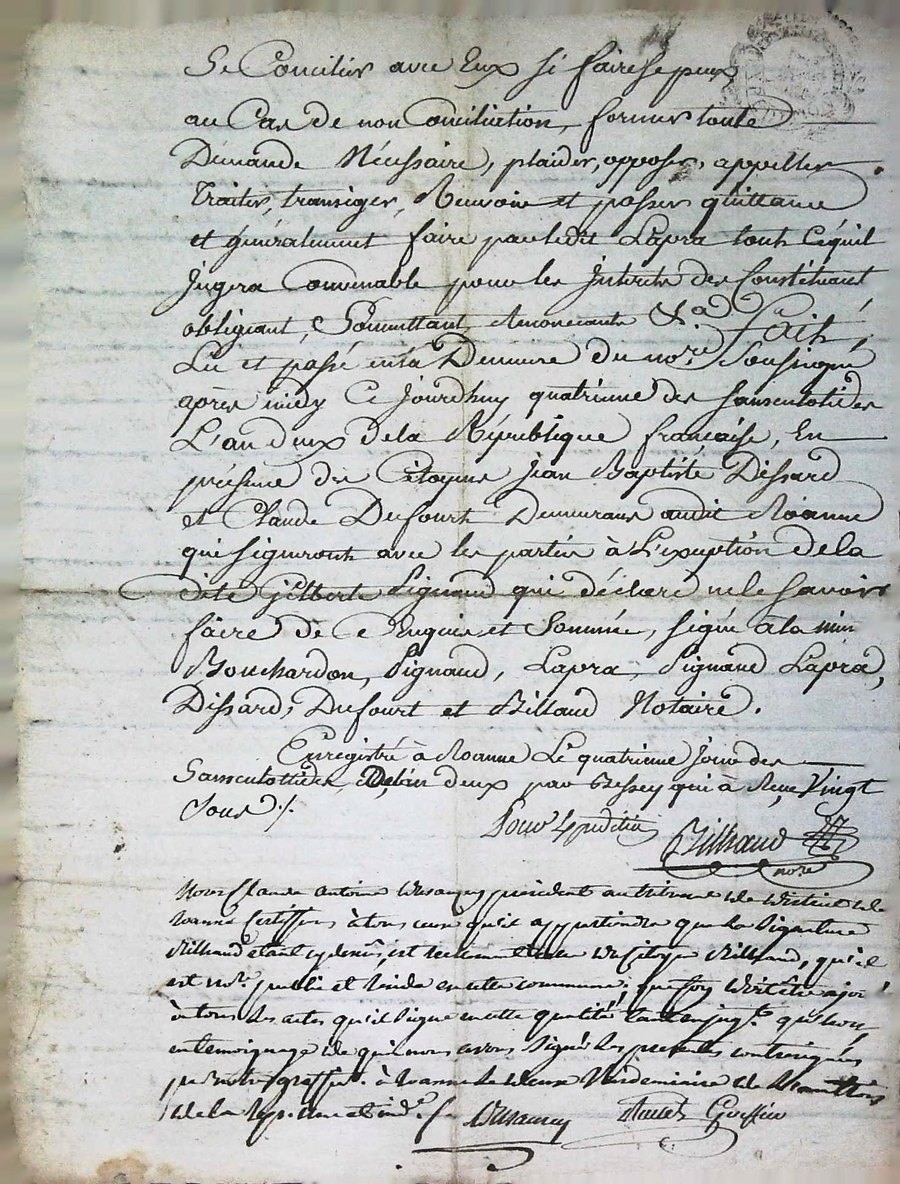 Se Concilier avec Eux si faire se peux
au Cas de non Conciliation, former toute
Demande Nécessaire, plaider, opposer, appeller
Traiter, transiger, Recevoir et passer quittance
et généralement faire par ledit Lapra tout ce quil
Jugera Convenable pour les Interets des Constituant
obligeant, Promettant, Renoncants &.a Fait,
Lu et passé en la Demeure du no.re Soussigné
après midy Ce Jourdhuy quatrieme des Sansculotides
L'an deux de la République française, En
présence des Citoyens Jean Baptiste Dissard
et Claude Dufourt Demeurans audit Roanne
qui signeront avec les parties à L'exception de la
dite Gilberte Pignaud qui a déclaré ne le Savoir
faire de ce Enquise et Sommée, signé a la min
Bouchardon, Pignaud, Lapra, Pignaud Lapra,
Dissard, Dufourt et Billaud Notaire.
Enregistré à Roanne Le quatrieme Jour des
Sansculottides deux par Bessey qui à Reçu Vingt
Sous ./.
Pour Expedition Billiaud
no.re
Nous Claude Antoine président au tribunal de District de
Roanne Certiffions à tous ceux qu'il appartiendra que la Signature
Billiaud etant cy dessus, est du Citoyen Billiaud, qu'il
est no.re public et Reside en cette commune, que foy doit être
à tous les actes qu'il Signe en cette qualité tant en jug.t que hors,
en temoignage de quoi nous avons Signé les presentes contresignées
par notre greffier. à Roanne le deux Vendemiaire de
de la Rep. une et ind.e
Greffier